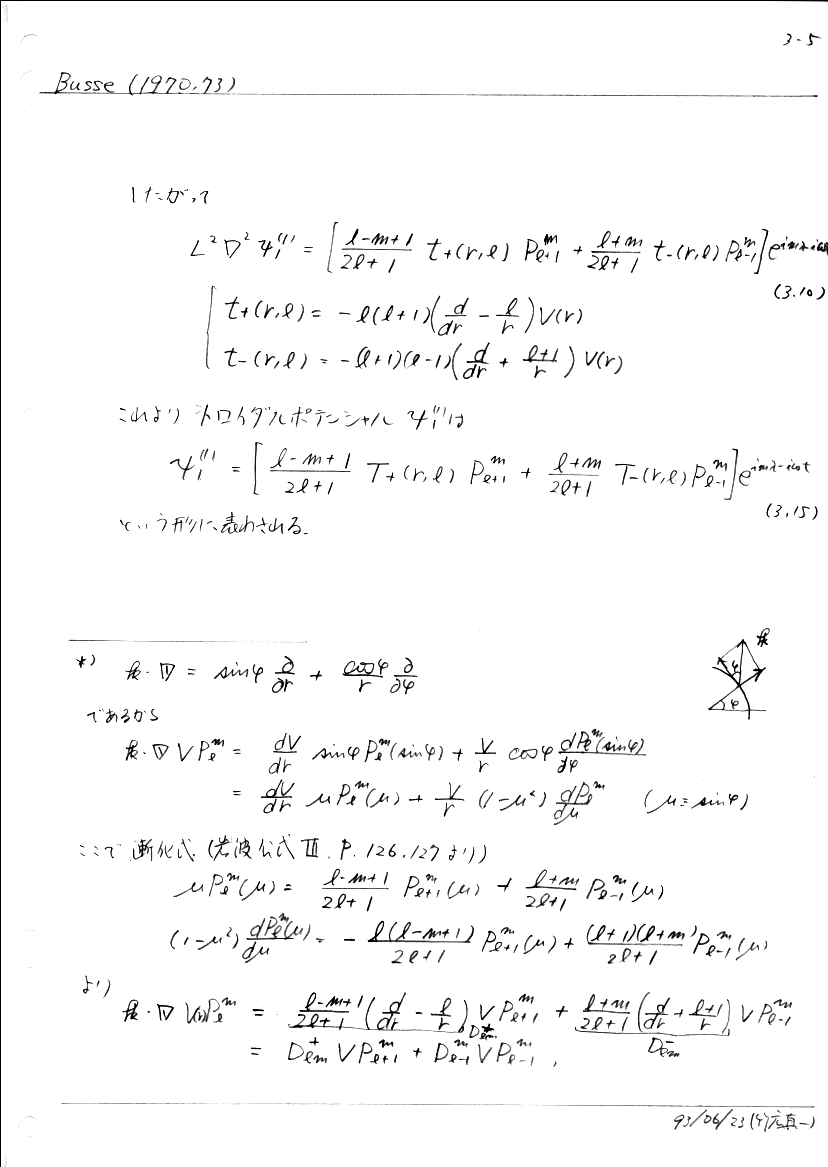 3-5
Busse (1970.73)
したがって
L²∇²ψ₁⁽¹⁾ = [ (l-m+1)/(2l+1) t₊(r,l) P_{l+1}^m + (l+m)/(2l+1) t₋(r,l) P_{l-1}^m ] e^{imλ-iωt}
(3.10)
t₊(r,l) = -l(l+1)(d/dr - l/r) V(r)
t₋(r,l) = -(l+1)(l-1)(d/dr + (l+1)/r) V(r)
これより トロイダルポテンシャル ψ₁⁽¹⁾は
ψ₁⁽¹⁾ = [ (l-m+1)/(2l+1) T₊(r,l) P_{l+1}^m + (l+m)/(2l+1) T₋(r,l) P_{l-1}^m ] e^{imλ-iωt}
(3.15)
という形に表わされる.
*) k·∇ = sinφ ∂/∂r + cosφ/r ∂/∂φ
k φ φ
であるから
k·∇ V P_l^m = dV/dr sinφ P_l^m(sinφ) + V/r cosφ dP_l^m(sinφ)/dφ
= dV/dr μP_l^m(μ) + V/r (1-μ²) dP_l^m/dμ (μ=sinφ)
ここで 漸化式 (岩波公式 III. P.126,127 より)
μP_l^m(μ) = (l-m+1)/(2l+1) P_{l+1}^m(μ) + (l+m)/(2l+1) P_{l-1}^m(μ)
(1-μ²) dP_l^m(μ)/dμ = - l(l-m+1)/(2l+1) P_{l+1}^m(μ) + (l+1)(l+m)/(2l+1) P_{l-1}^m(μ)
より
k·∇ V(r)P_l^m = (l-m+1)/(2l+1) (d/dr - l/r) V P_{l+1}^m + (l+m)/(2l+1) (d/dr + (l+1)/r) V P_{l-1}^m
D_{lm}^+ D_{lm}^-
= D_{lm}^+ V P_{l+1}^m + D_{l-1}^m V P_{l-1}^m ,